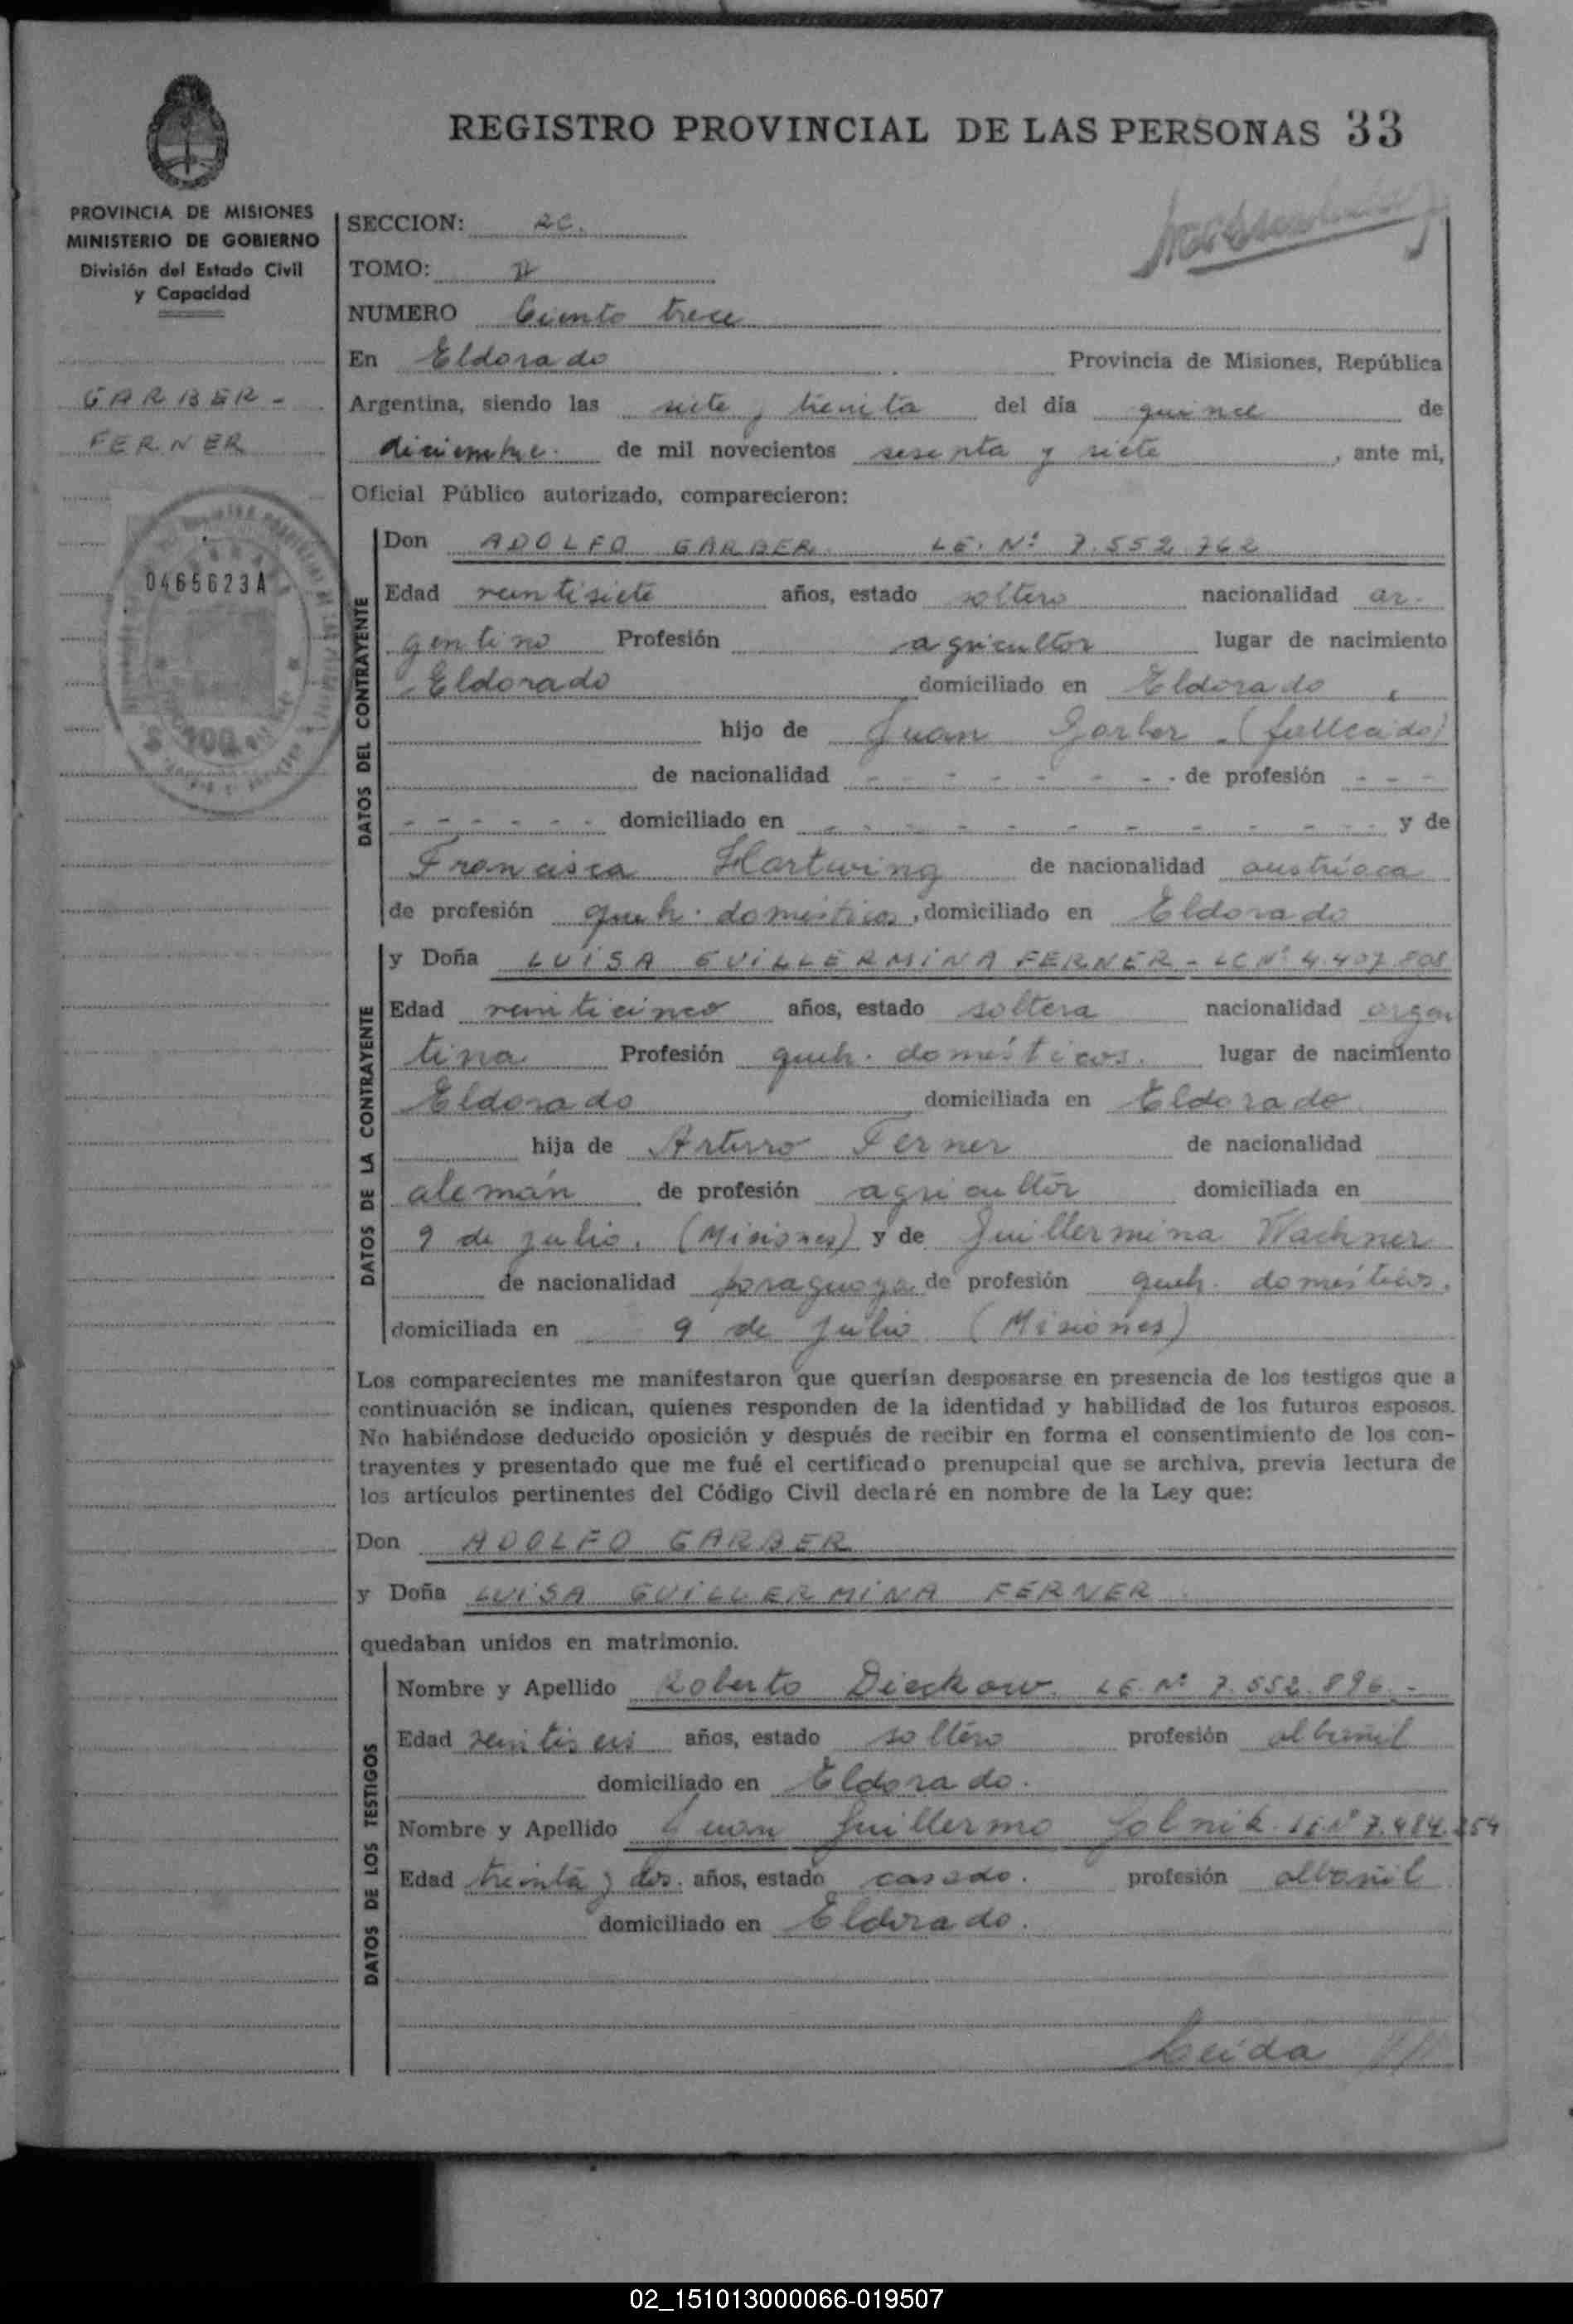 REGISTRO PROVINCIAL DE LAS PERSONAS 33
PROVINCIA DE MISIONES
MINISTERIO DE GOBIERNO
División del Estado Civil
y Capacidad
GARBER -
FERNER
0465623A
$ 100
SECCION: RC.
TOMO: II
NUMERO Ciento trece
En Eldorado Provincia de Misiones, República
Argentina, siendo las siete y treinta del día quince de
diciembre de mil novecientos sesenta y siete, ante mi,
Oficial Público autorizado, comparecieron:
DATOS DEL CONTRAYENTE
Don ADOLFO GARBER LE. Nº 7.552.762
Edad veintisiete años, estado soltero nacionalidad ar-
gentino Profesión agricultor lugar de nacimiento
Eldorado domiciliado en Eldorado,
hijo de Juan Garber - (fallecido)
de nacionalidad - - - - - - - de profesión - - -
- - - - - - domiciliado en - - - - - - - - - y de
Francisca Hartwing de nacionalidad austríaca
de profesión queh. domésticos, domiciliado en Eldorado
DATOS DE LA CONTRAYENTE
y Doña LUISA GUILLERMINA FERNER - LC Nº 4.407.808
Edad veinticinco años, estado soltera nacionalidad argen
tina Profesión queh. domésticos. lugar de nacimiento
Eldorado domiciliada en Eldorado
hija de Arturo Ferner de nacionalidad
alemán de profesión agricultor domiciliada en
9 de julio. (Misiones) y de Guillermina Wachner
de nacionalidad paraguaya de profesión queh. domésticos.
domiciliada en 9 de Julio (Misiones)
Los comparecientes me manifestaron que querían desposarse en presencia de los testigos que a
continuación se indican, quienes responden de la identidad y habilidad de los futuros esposos.
No habiéndose deducido oposición y después de recibir en forma el consentimiento de los con-
trayentes y presentado que me fué el certificado prenupcial que se archiva, previa lectura de
los artículos pertinentes del Código Civil declaré en nombre de la Ley que:
Don ADOLFO GARBER
y Doña LUISA GUILLERMINA FERNER
quedaban unidos en matrimonio.
DATOS DE LOS TESTIGOS
Nombre y Apellido Roberto Dieckow LE. Nº 7.552.896.-
Edad veintiseis años, estado soltero profesión albañil
domiciliado en Eldorado.
Nombre y Apellido Juan Guillermo Golnik LE Nº 7.484.254
Edad treinta y dos. años, estado casado. profesión albañil
domiciliado en Eldorado.
Leída
02_151013000066-019507